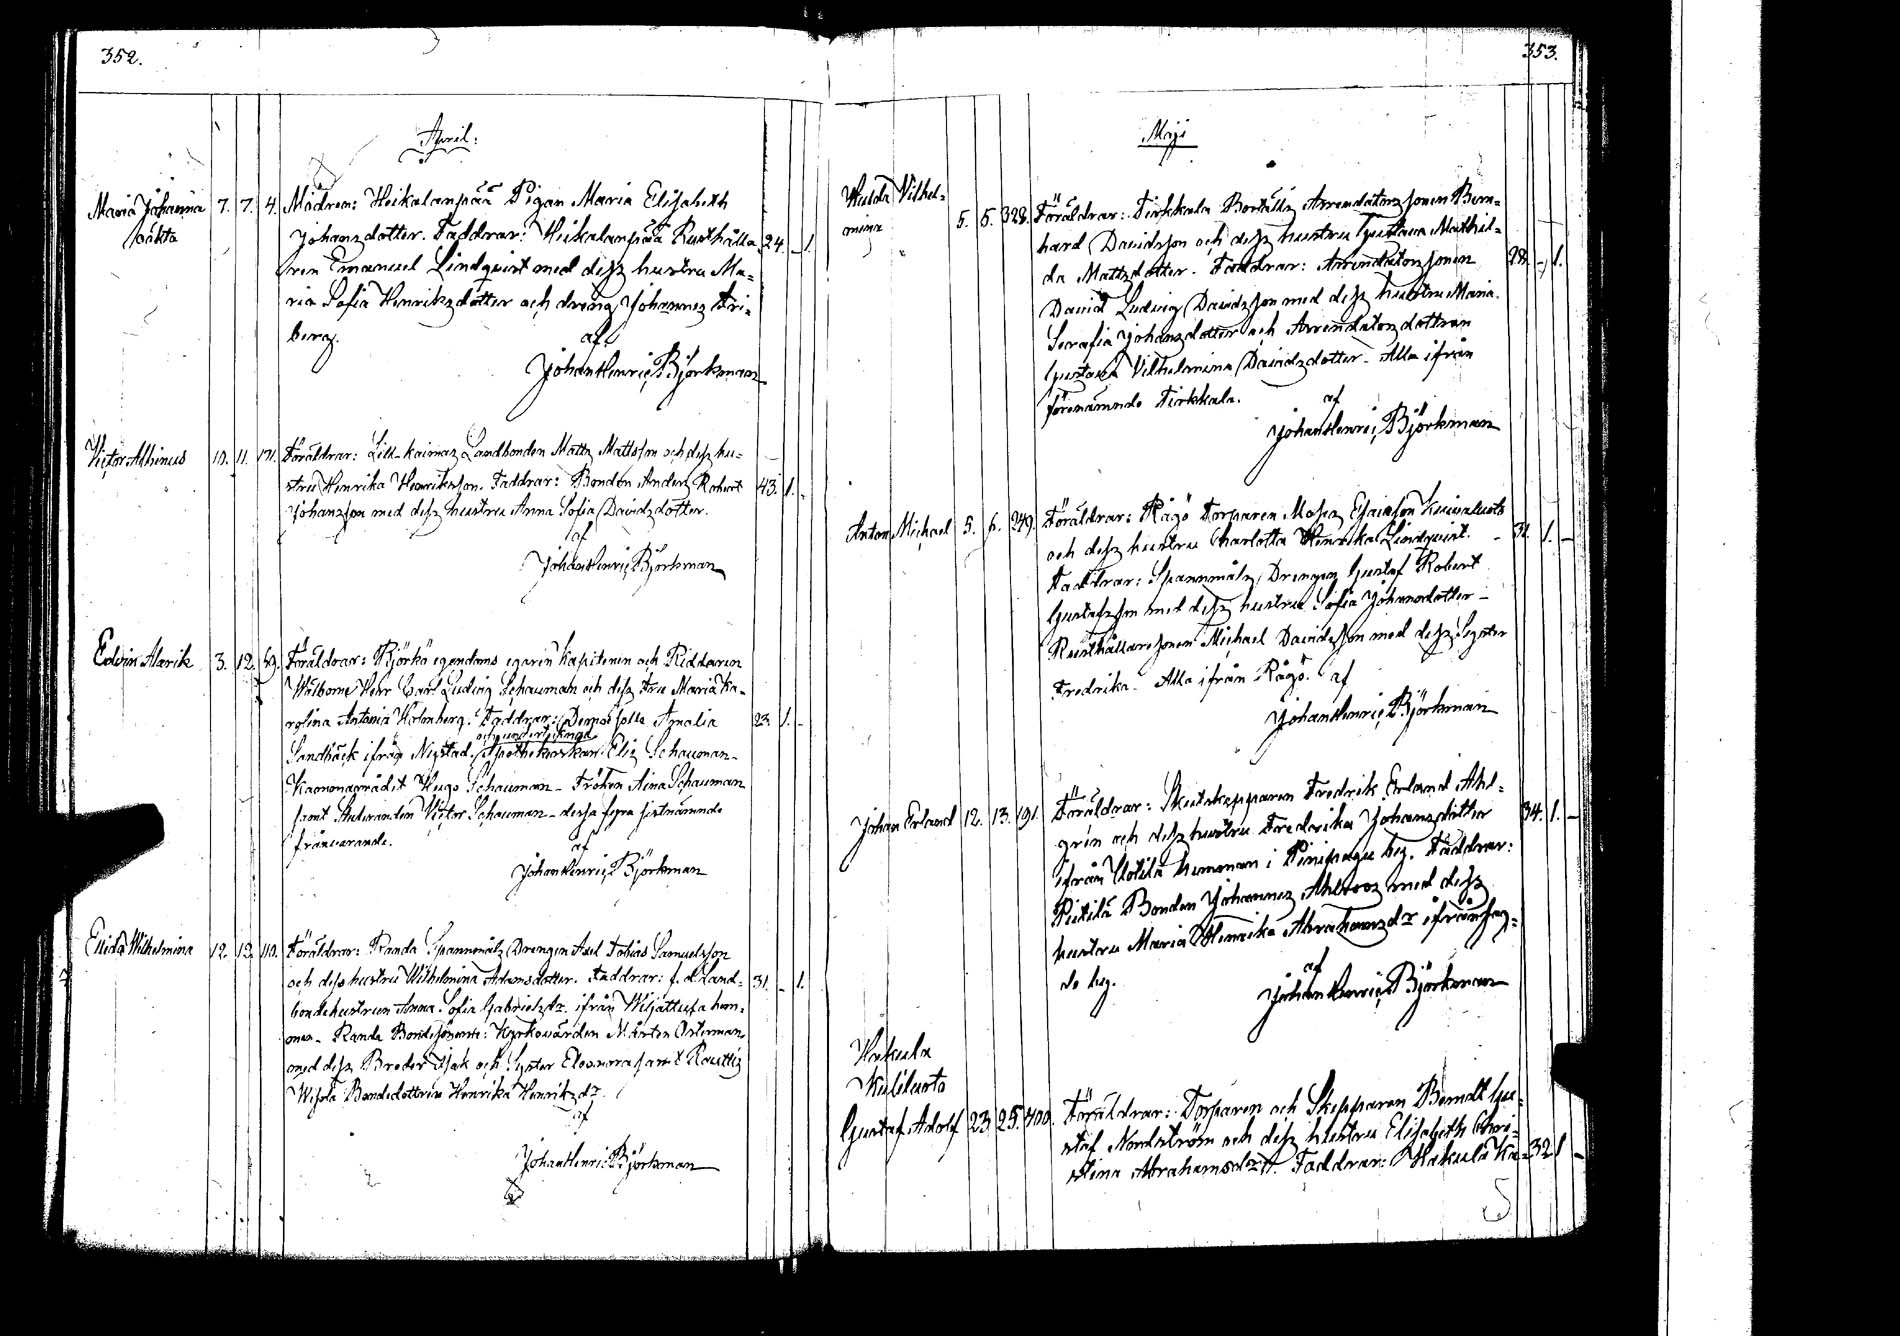 352.
April:
Maria Johanna 7. 7. 4. Modren: Heikalanpää Pigan Maria Elisabeth
oäkta Johansdotter. Faddrar: Heikalanpää Rusthålla 24. - 1.
ren Emanuel Lindqvist med dess hustru Ma-
ria Sofia Henriksdotter och dreng Johannes Fri-
berg.
af
Johan Henric Björkman
Victor Albinus 10. 11. 171. Föräldrar: Lill-kaimas Landbonden Matts Mattsson och dess hu-
stru Henrika Henriksson. Faddrar: Bonden Anders Robert 43. 1. -
Johansson med dess hustru Anna Sofia Davidsdotter.
af
Johan Henric Björkman
Edvin Alarik 3. 12. 69. Föräldrar: Björkö egendoms egaren Kapitenen och Riddaren
Välborne Herr Carl Ludvig Schauman och dess Fru Maria Ka-
rolina Antonia Holmberg. Faddrar: Demoiselle Amalia 23 1. -
Sandbäck ifrån Nystad. Apothekerskan Elis Schauman-
Hugo Schauman - Fröken Aina Schauman
samt Studeranden Victor Schauman - dessa fyra sistnämnde
frånvarande.
af
Johan Henric Björkman
Elida Wilhelmina 12. 13. 110. Föräldrar: Randa Spannmåls Drengen Axel Tobias Samuelsson
och dess hustru Wilhelmina Adamsdotter. Faddrar: f.d. Land- 31. - 1.
bondehustrun Anna Sofia Gabrielsdr. ifrån hem-
man - Randa Kyrkovärden Mårten Österman
med dess Broder Isak och Syster Eleonora samt
Bondedottren Henrika Henriksdr.
af
Johan Henric Björkman
353.
Maji
Hulda Vilhel-
mina 5. 5. 328. Föräldrar: Tirkkala Boställs Arrendatorssonen Bern-
hard Davidsson och dess hustru Gustava Mathil-
da Mattsdotter. Faddrar: Arrendatorssonen 28. - 1.
David Ludvig Davidsson med dess hustru Maria
Serafia Johansdotter och Arrendatorsdottren
Gustava Vilhelmina Davidsdotter. Alla ifrån
förenämnde Tirkkala.
af
Johan Henric Björkman
Anton Michael 5. 6. 249. Föräldrar: Rågö Torparen Moses Esaiasson Kuivaluoto
och dess hustru Charlotta Henrika Lindqvist. - 31. 1. -
Faddrar: Spannmåls Drengen Gustaf Robert
Gustafsson med dess hustru Sofia Johansdotter -
Rusthållaresonen Michael Davidsson med dess Syster
Fredrika. Alla ifrån Rågö. af
Johan Henric Björkman
Johan Erland 12. 13. 191. Föräldrar: Skutskepparen Fredrik Erland Ahl- 34. 1. -
grén och dess hustru Fredrika Johansdotter
ifrån hemman i Pinipaju by. Faddrar:
Pietilä Bonden Johannes Ahlroos med dess
hustru Maria Henrika Abrahamsdr ifrån sag-
de by.
af
Johan Henric Björkman
Hakula
Kuliluoto
Gustaf Adolf 23 25. 400. Föräldrar: Torparen och Skepparen Berndt Gu-
staf Nordström och dess hustru Elisabeth Chri-
stina Abrahamsdr. Faddrar: Hakula Kä- 32 1 -